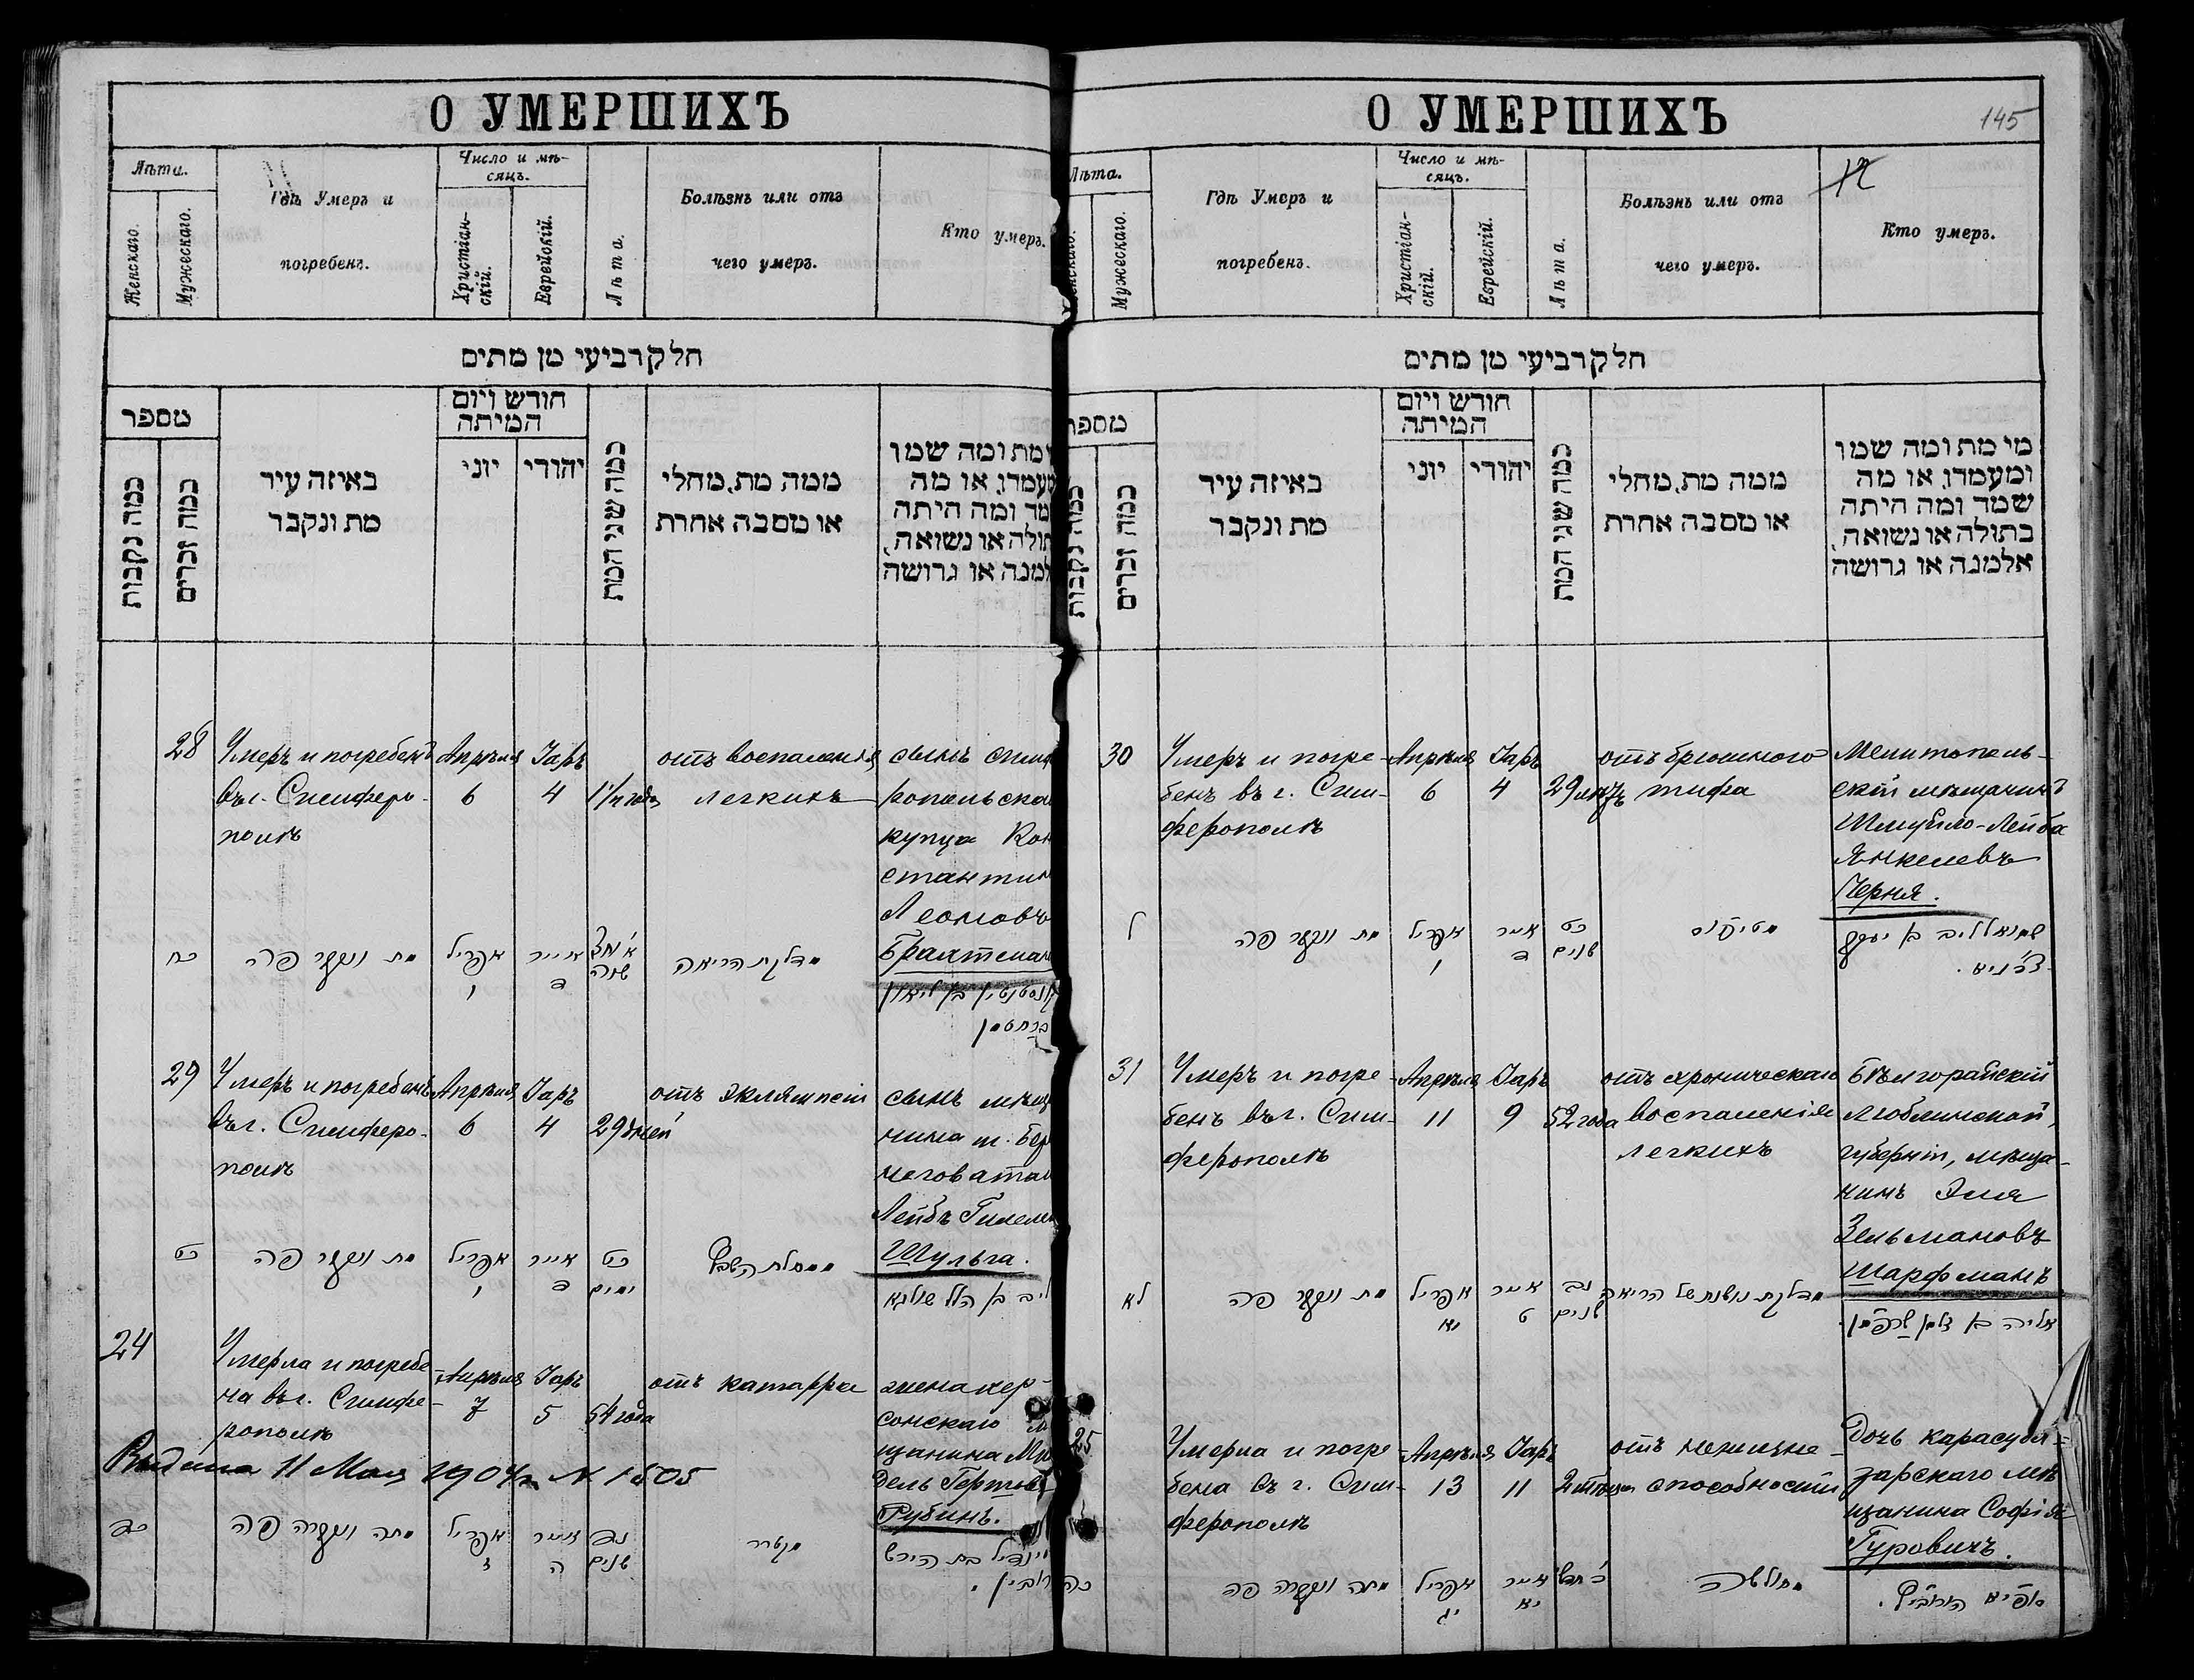 О УМЕРШИХЪ
Лѣта.
Женскаго.
Мужескаго.
Гдѣ Умеръ и
погребенъ.
Число и мѣ-
сяцъ.
Христіан-
скій.
Еврейскій.
Лѣта.
Болѣзнь или отъ
чего умеръ.
Кто умеръ.
חלק רביעי מן מתים
מספר
כמה נקבות
כמה זכרים
באיזה עיר
מת ונקבר
חודש ויום
המיתה
יוני
יהודי
כמה שני המת
ממה מת, מחלי
או מסבה אחרת
מת ומה שמו
או מה
ומה היתה
או נשואה,
או גרושה
28
Умеръ и погребенъ
въ г. Симферо-
полѣ
Апрѣля
6
Іаръ
4
1½ года
отъ воспаленія
легкихъ
сынъ
купца
Леоновъ
כח
מת ונקבר פה
אפריל
ו
אייר
ד
שנה
מדלקת הריאה
בן ליאון
29
Умеръ и погребенъ
въ г. Симферо-
полѣ
Апрѣля
6
Іаръ
4
29 дней
отъ эклямпсіи
сынъ
Лейбъ
Шульга.
כט
מת ונקבר פה
אפריל
ו
אייר
ד
כט
ימים
ליב בן הלל שולגא
24
Умерла и погребе-
на въ г. Симфе-
рополѣ
Апрѣля
7
Іаръ
5
54 года
отъ катарра
жена хер-
сонскаго
щанина
Рубинъ.
Выдана 11 Мая 1904 г. № 1505
כד
מתה ונקברה פה
אפריל
ז
אייר
ה
נד
שנים
בת הירש
רובין.
О УМЕРШИХЪ
145
Лѣта.
Мужескаго.
Гдѣ Умеръ и
погребенъ.
Число и мѣ-
сяцъ.
Христіан-
скій.
Еврейскій.
Лѣта.
Болѣзнь или отъ
чего умеръ.
12
Кто умеръ.
חלק רביעי מן מתים
מספר
כמה נקבות
כמה זכרים
באיזה עיר
מת ונקבר
חודש ויום
המיתה
יוני
יהודי
כמה שני המת
ממה מת, מחלי
או מסבה אחרת
מי מת ומה שמו
ומעמדו, או מה
שמה ומה היתה
בתולה או נשואה,
אלמנה או גרושה
30
Умеръ и погре-
бенъ въ г. Сим-
ферополѣ
Апрѣля
6
Іаръ
4
29 лѣтъ
отъ брюшного
тифа
Мелитополь-
скій мѣщанинъ
Шмуйло-Лейба
Янкелевъ
Черня.
ל
מת ונקבר פה
אפריל
ו
אייר
ד
כט
שנים
מטיפוס
שמואל ליב בן יעקב
31
Умеръ и погре-
бенъ въ г. Сим-
ферополѣ
Апрѣля
11
Іаръ
9
52 года
отъ хроническаго
воспаленія
легкихъ
Бѣлгорайскій
Люблинской
губерніи, мѣща-
нинъ Эля
Зельмановъ
Шарфманъ
לא
מת ונקבר פה
אפריל
יא
אייר
ט
נב
שנים
מדלקת נושנת של הריאה
אליה בן זלמן שרפמן.
25
Умерла и погре-
бена въ г. Сим-
ферополѣ
Апрѣля
13
Іаръ
11
отъ нежизне-
способности
Дочь карасуба-
зарскаго мѣ-
щанина Софія
Гуровичъ.
כה
מתה ונקברה פה
אפריל
יג
אייר
יא
מחולשה
סופיא הורוביץ.